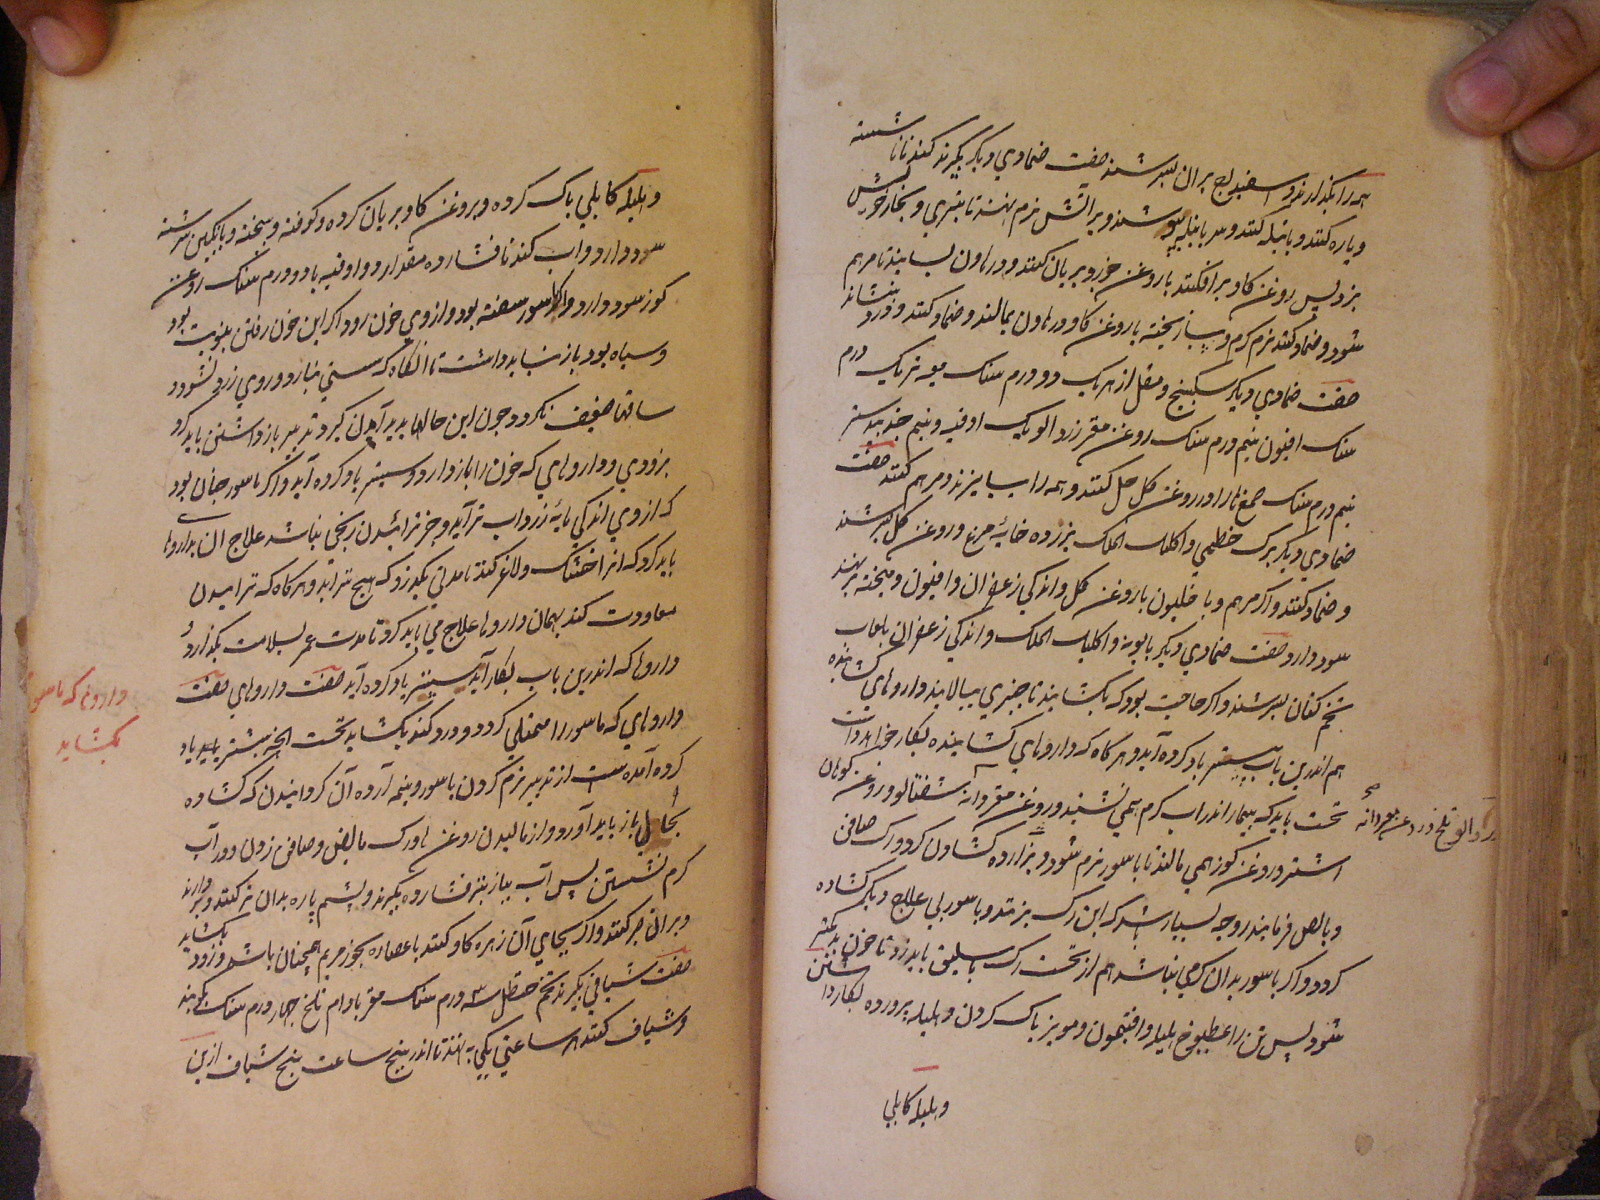 همه را بگدازند و سفیداج بران بسرشند صفت ضمادی دیگر بگیرند کندنا ناشسته
و پاره کنند و باتیله کنند و سر باتیله بپوشند و بر آتش نرم نهند تا بتری و بخار خویش
بزد پس روغن کاو برافکنند با روغن جوز و بریان کنند و در هاون بسایند تا مرهم
شود و ضماد کنند نرم کرم و پیاز پخته با روغن کاو در هاون بمالند و ضماد کنند و درد بنشاند
صفت ضمادی دیگر سکبینج و مقل از هریک دو درم سنک میعه تر یک درم
سنک افیون نیم درم سنک روغن مغز زردالو یک اوقیه و نیم جندبیدستر
نیم درم سنک صمغها را در روغن کل حل کنند و همه را بسایند و مرهم کنند صفت
ضمادی دیگر برک خطمی و اکلیل الملک بزرده خایه مرغ و روغن کل بسرشند
و ضماد کنند و اکر مرهم و یاخلیون با روغن کل و اندکی زعفران و افیون و میخته بر نهند
سود دارد صفت ضمادی دیگر بابونه و اکلیل الملک و اندکی زعفران بلعاب
تخم کتان بسرشند و اکر حاجت بود که بکشایند تا چیزی بپالاید داروهای کشاینده
هم اندرین باب پیشتر یاد کرده آید و هرکاه که داروهای کشاینده بکار خواهد داشت
نخست باید که بیمار اندر آب کرم همی نشیند و روغن مغز دانه شفتالو و روغن کوهان
اشتر و روغن کوز همی مالند تا باسور نرم شود و بزداروه کشادن کردد رک صافن
و بالض فرمایند و جه بسیار باشد که این رک بزنند و باسور بی علاج دیگر کشاده
کردد و اکر باسور بدان کرمی نباشد هم از نخست رک باسلیق باید زد تا خون بد کمتر
شود پس تن را بمطبوخ هلیله و افتیمون و مویز پاک کردن و هلیله پرورده بکار داشتن
و هلیله کابلی
زردالو تلخ و روغن مغز دانه
و هلیله کابلی پاک کرده و بروغن کاو بریان کرده و کوفته و بیخته و بانکبین سرشته
سود دارد و آب کندنا فشارده مقدار دو اوقیه با دو درم سنک روغن
کوز سود دارد و اکر باسور سفته بود و از وی خون رود اکر این خون رفتن بنوبت بود
و سیاه بود باز نباید داشت تا آنکاه که سستی نیارد و روی زرد نشود و
ساقها ضعیف نکردد چون این حالها پدید آمدن کیرد تدبیر باز داشتن باید کرد
بزودی و داروهای که خون را باز دارد و پیشتر یاد کرده آید و اکر ناسور چنان بود
که از وی اندکی مایه زرداب ترآید و جز ترائیدن رنجی نباشد علاج آن بداروها
باید کرد که آنرا خشک و لاغر کند تا مدتی بگذرد که هیچ نترآید و هرکاه که ترائیدن
معاودت کند بهمان داروها علاج می باید کرد تا مدت عمر بسلامت بگذارد و
داروها که اندرین باب بکار آید پیشتر یاد کرده آید صفت داروهای صفت
داروهای که ناسور را ممتلی کردد و درد کند بکشاید نخست آنچه پیشتر باید یاد
کرده آمده ست از تدبیر نرم کردن باسور و نیمه آرده آن کردانیدن که کشاده
بجای باز باید آورد و از مالیدن روغن ها و رک مابض و صافن زدن و در آب
کرم نشستن پس آب پیاز بنز فشارده بگیرند و پشم پاره بدان تر کنند و بردارند
و بران صبر کنند و اکر بجای آن زهره کاو کنند با عصاره بخور مریم همچنان باشد و زود بکشاید
صفت شیافی بگیرند تخم حنظل سه درم سنک مغز بادام تلخ چهار درم سنک بکوبند
و شیاف کنند هر ساعتی یکی بر نهند تا اندر پنج ساعت پنج شیاف ازین
داروها که ناسور
بکشاید